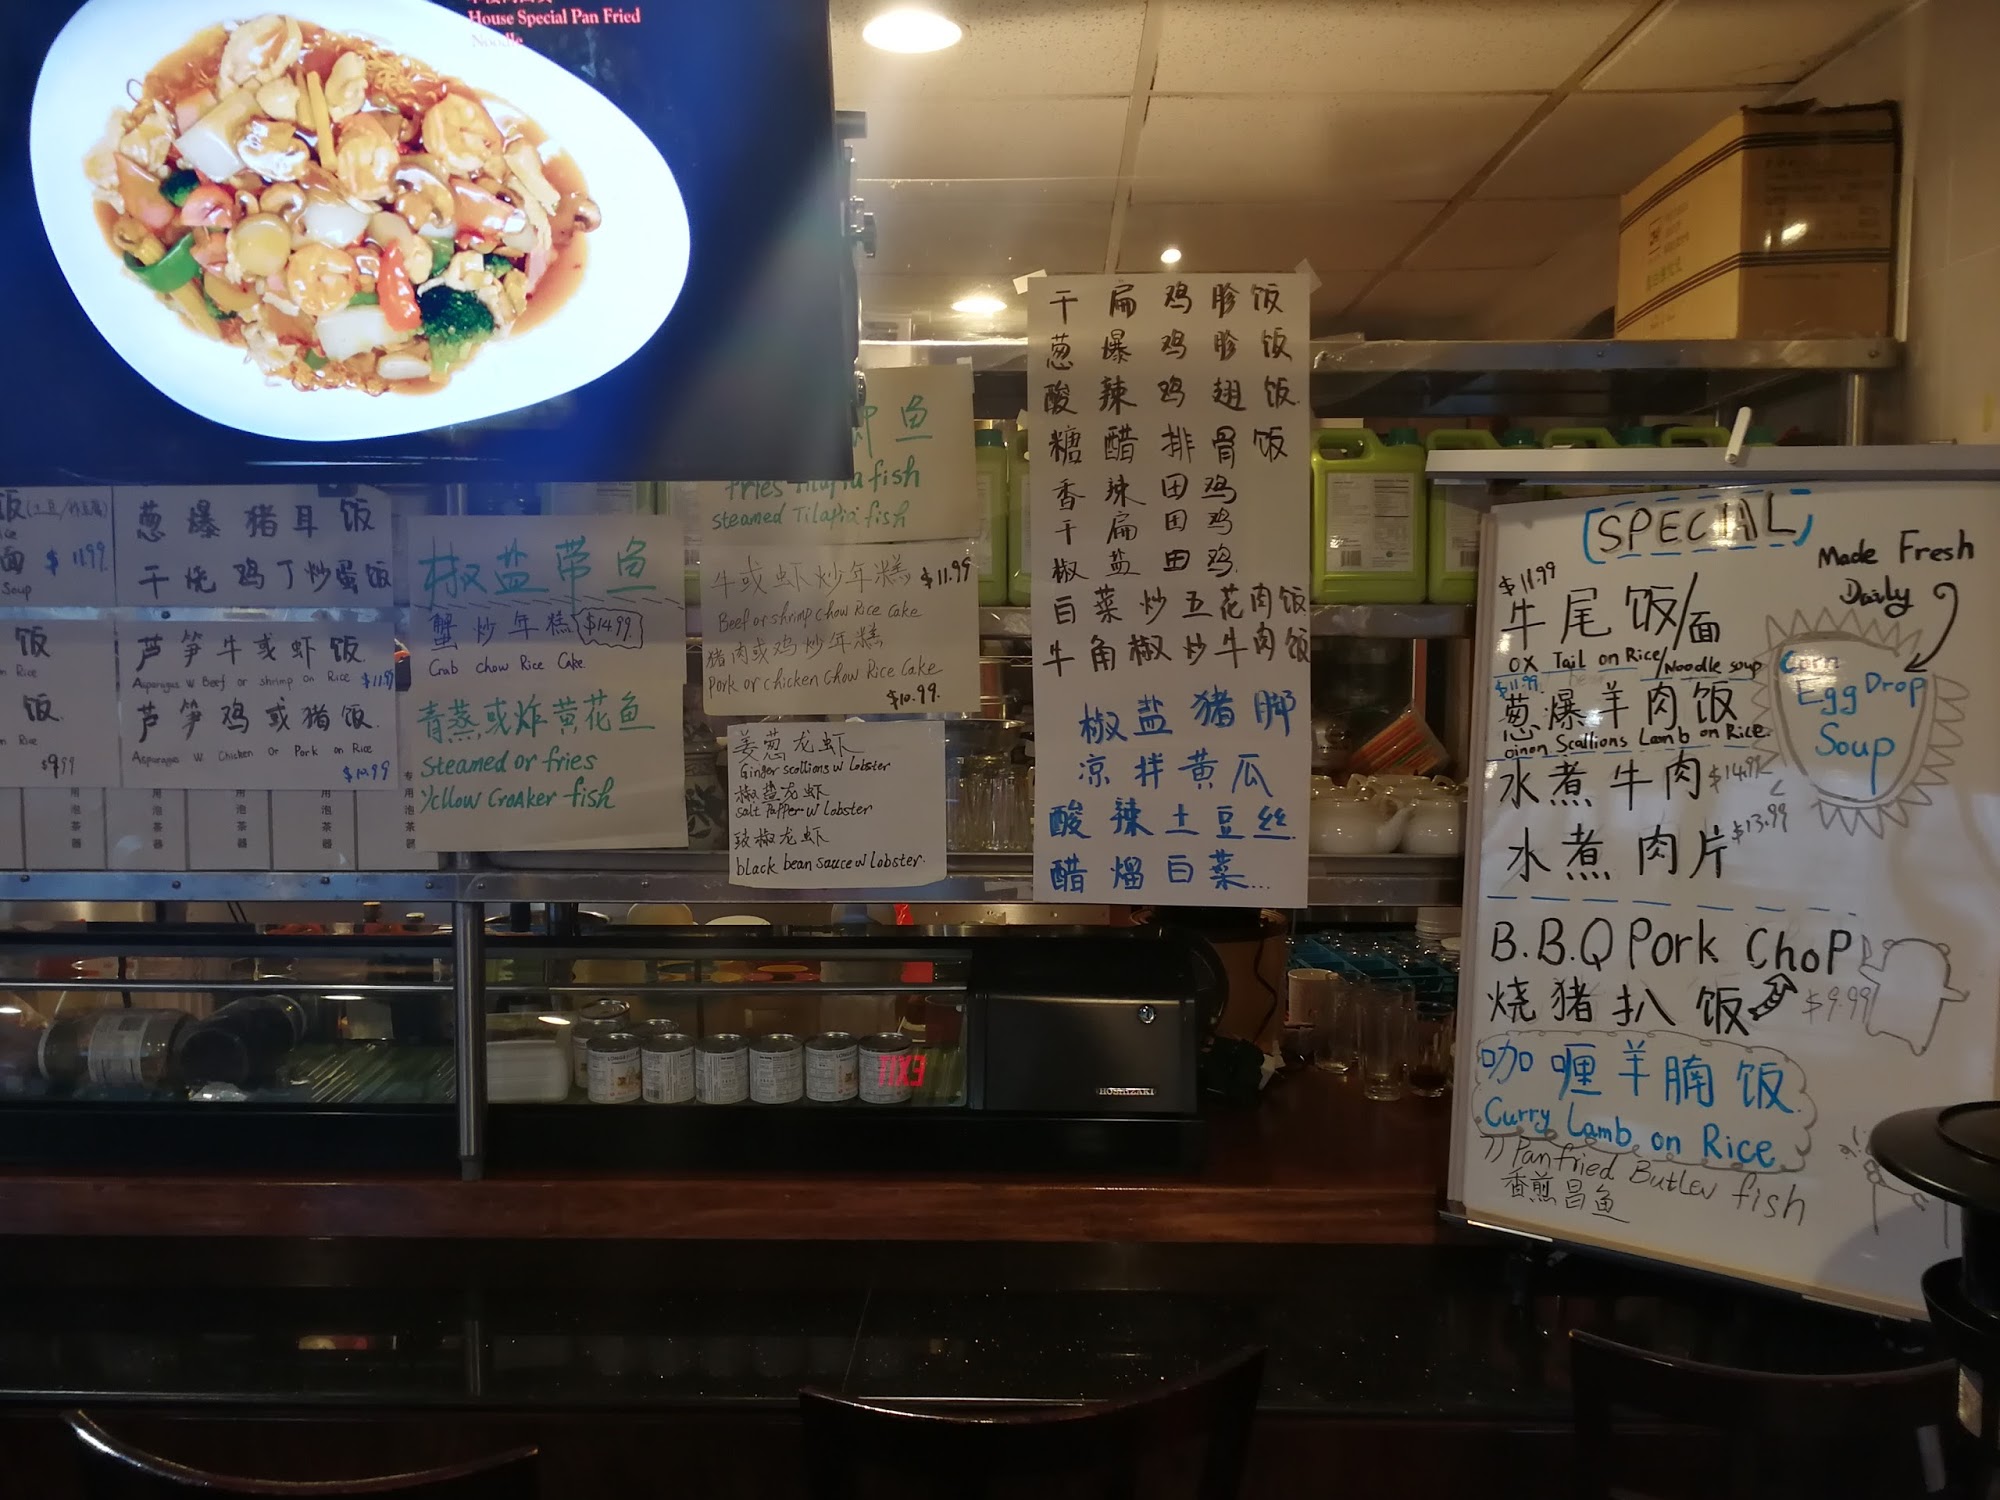 House Special Pan Fried
Noodle
饭
面 $11.99
Soup
饭
n Rice
饭
n Rice
$9.99
葱爆猪耳饭
干烧鸡丁炒蛋饭
芦笋牛或虾饭
Asparagus w Beef or shrimp on Rice $11.99
芦笋鸡或猪饭
Asparagus w Chicken or Pork on Rice
$10.99
用泡茶器
用泡茶器
用泡茶器
用泡茶器
椒盐带鱼
蟹炒年糕 $14.99
Crab chow Rice Cake
青蒸或炸黄花鱼
Steamed or fries
Yellow CroAker fish
鱼
fries Tilapia fish
steamed Tilapia fish
牛或虾炒年糕 $11.99
Beef or shrimp chow Rice cake
猪肉或鸡炒年糕
Pork or chicken chow Rice Cake
$10.99.
姜葱龙虾
Ginger scallions w Lobster
椒盐龙虾
salt Pepper w Lobster
豉椒龙虾
black bean sauce w Lobster.
干扁鸡胗饭
葱爆鸡胗饭
酸辣鸡翅饭
糖醋排骨饭
香辣田鸡
干扁田鸡
椒盐田鸡
白菜炒五花肉饭
牛角椒炒牛肉饭
椒盐猪脚
凉拌黄瓜
酸辣土豆丝
醋熘白菜...
SPECIAL
Made Fresh
Daily
$11.99
牛尾饭/面
OX Tail on Rice/Noodle soup
$11.99
葱爆羊肉饭
oinon Scallions Lamb on Rice
水煮牛肉 $14.99
水煮肉片 $13.99
Corn
Egg Drop
Soup
B.B.Q Pork Chop
烧猪扒饭 $9.99
咖喱羊腩饭
Curry Lamb on Rice
Pan fried Butler fish
香煎昌鱼
HOSHIZAKI
EXIT